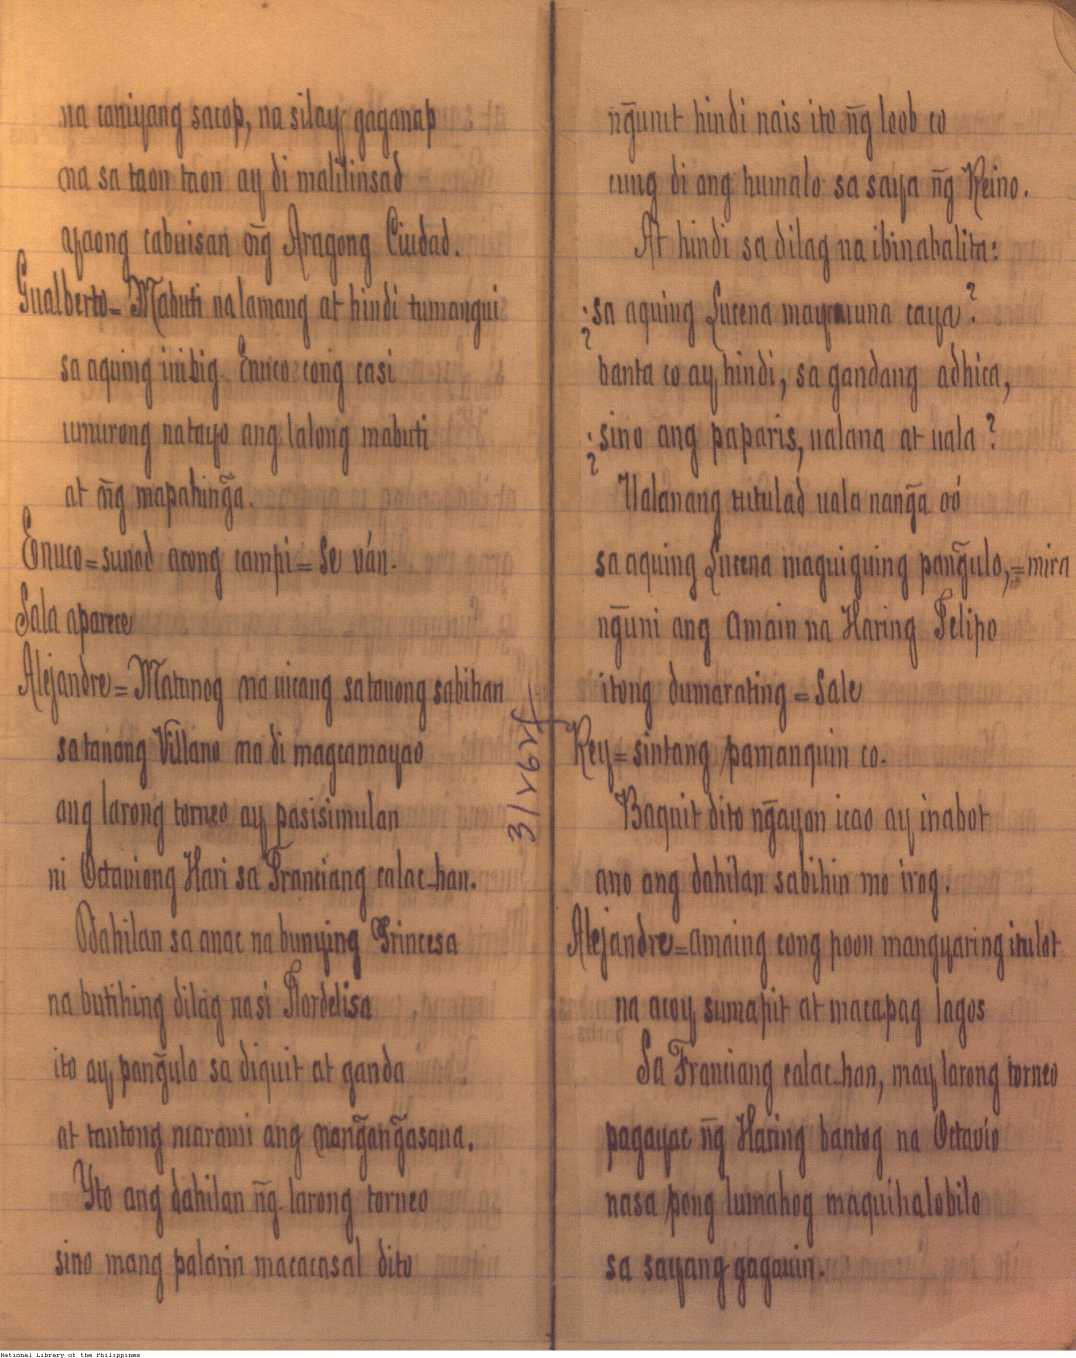 na caniyang sacop, na silay gaganap
na sa taon taon ay di malilinsad
ayaong cabuisan n̄g Aragong Ciudad.
Gualberto = Mabuti na lamang at hindi tumangui
sa aquing inibig. Enuco cong casi
umurong natayo ang lalong mabuti
at n̄g mapahing̃a.
Enuco = sunod acong campi = Se ván.
Sala aparece
Alejandre = Matunog na uicang sa tauong sabihan
sa tanang Villano na di magcamayao
ang larong torneo ay pasisimulan
ni Octaviong Hari sa Franciang calac-han.
Dahilan sa anac na bunying Princesa
na butihing dilág na si Flordelisa
ito ay pang̃ulo sa diquit at ganda
at tantong marami ang nang̃ang̃asaua.
Yto ang dahilan n̄g larong torneo
sino mang palarin macacasal dito
n̄gunit hindi náis ito n̄g loob co
cung di ang humalo sa saya n̄g Reino.
At hindi sa dilag na ibinabalita:
¿sa aquing Lucena mayruna caya?
banta co ay hindi, sa gandang adhica,
¿sino ang paparis, ualana at uala?
Ualanang tutulad uala nang̃a oó
sa aquing Lucena maguiguing pang̃ulo, = mira
n̄guni ang amain na Haring Felipo
itong dumarating = Sale
Rey = sintang pamanquin co.
Baquit dito n̄gayon icao ay inabot
ano ang dahilan sabihin mo irog.
Alejandre = amaing cong poon mangyaring itulot
na acoy sumapit at macapag lagos
Sa Franciang calac-han, may larong torneo
pagayac n̄g Haring bantog na Octavio
nasa pong lumahog maquihalobilo
sa sayang gagauin.
31262
National Library of the Philippines